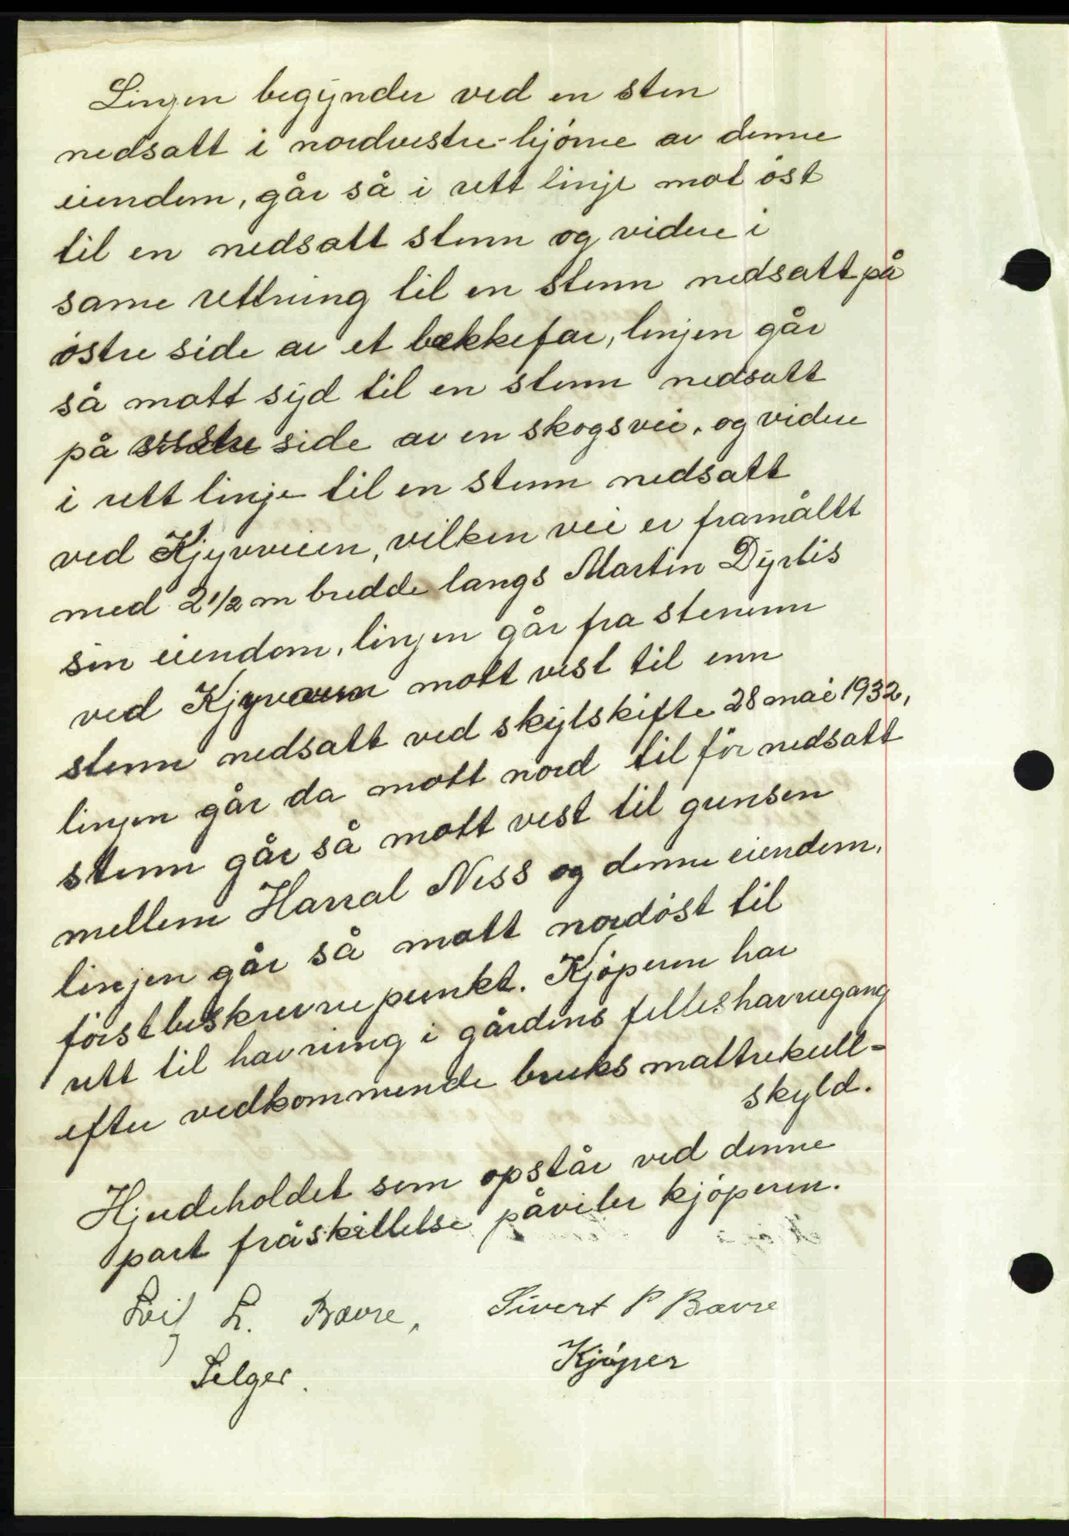 Linjen begÿnder ved en sten
nedsatt i nordvestre-hjórne av denne
eiendem, går så i rett linje mot óst
til en nedsatt stenn og videre i
same rettning til en stenn nedsatt på
óstre side av et bækkefar, linjen går
så mott sÿd til en stenn nedsatt
på side av en skogsvei, og videre
i rett linje til en stenn nedsatt
ved Kjyvveien, vilken vei er framåltt
med 2 1/2 m bredde langs Martin Dÿrlis
sin eiendom, linjen går fra stenenn
ved mott vest til enn
stenn nedsatt ved skÿlskifte 28 mai 1932,
linjen går da mott nord til fór nedsatt
stenn går så mott vest til grensen
mellem Harral Ness og denne eiendem,
linjen går så mott nordóst til
fórstbeskrevne punkt. Kjóperen har
rett til havning i gårdens felleshavnegang
efter vedkommende bruks mattrekull=
skyld.
Hjerdeholdet som opstår ved denne
part fråskillelse påviler kjóperen.
Leif L. Bævre, Sivert P Bævre
Selger. Kjóper